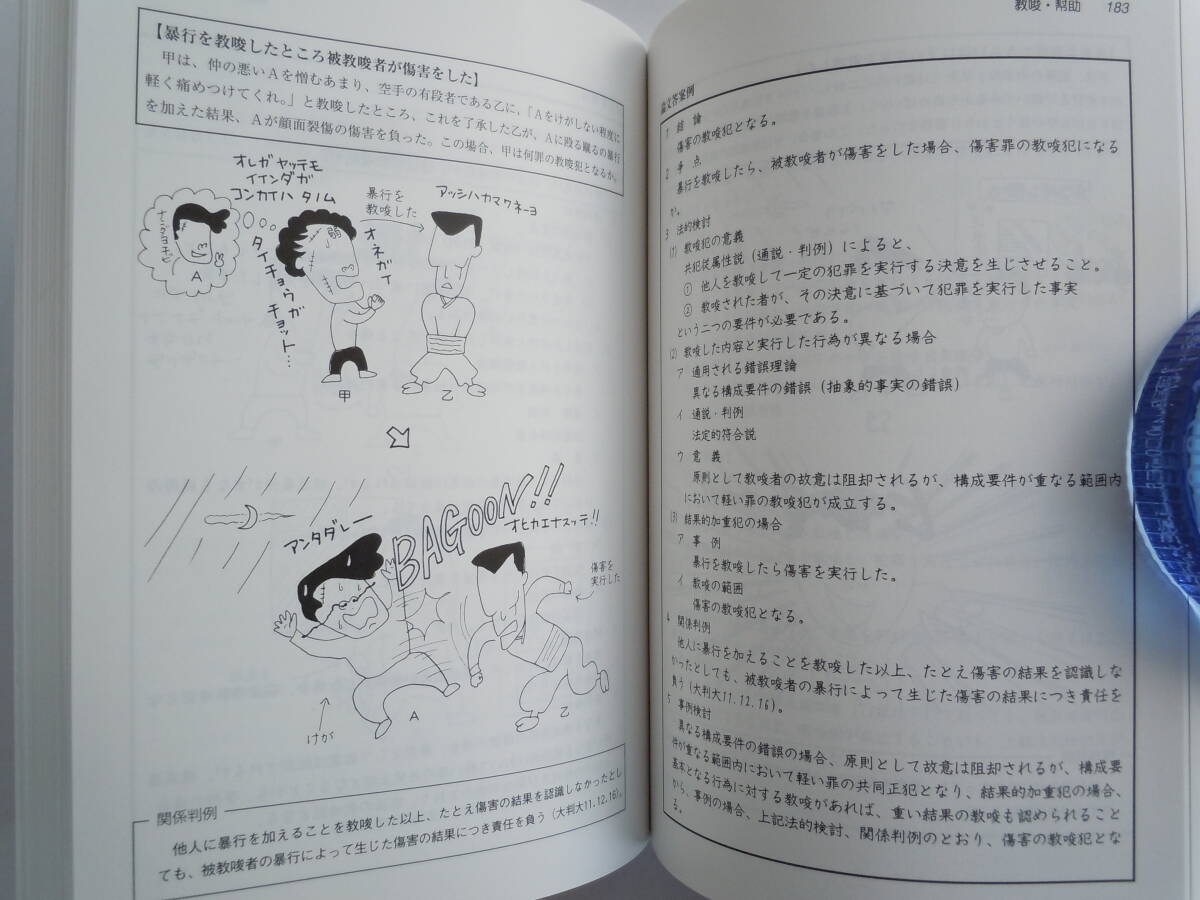 【暴行を教唆したところ被教唆者が傷害をした】
甲は、仲の悪いAを憎むあまり、空手の有段者である乙に、「Aをけがしない程度に
軽く痛めつけてくれ。」と教唆したところ、これを了承した乙が、Aに殴る蹴るの暴行
を加えた結果、Aが顔面裂傷の傷害を負った。この場合、甲は何罪の教唆犯となるか。
オレガヤッテモ
イインダガ
コンカイハタノム
暴行を
教唆した
アッシハカマワネーヨ
A
弱
オネガイ
タイチョウガ
チョット…
甲
乙
アンタダレー
BAGOON!!
オヒカエナスッテ!!
傷害を
実行した
A
乙
けが
関係判例
他人に暴行を加えることを教唆した以上、たとえ傷害の結果を認識しなかったとし
ても、被教唆者の暴行によって生じた傷害の結果につき責任を負う(大判大11.12.16)。
教唆・幇助 183
論文答案例
1 結論
傷害の教唆犯となる。
2 争点
暴行を教唆したら、被教唆者が傷害をした場合、傷害罪の教唆犯になる
か。
3 法的検討
(1) 教唆犯の意義
共犯従属性説(通説・判例)によると、
① 他人を教唆して一定の犯罪を実行する決意を生じさせること。
② 教唆された者が、その決意に基づいて犯罪を実行した事実
という二つの要件が必要である。
(2) 教唆した内容と実行した行為が異なる場合
ア 適用される錯誤理論
異なる構成要件の錯誤(抽象的事実の錯誤)
イ 通説・判例
法定的符合説
ウ 意義
原則として教唆者の故意は阻却されるが、構成要件が重なる範囲内
において軽い罪の教唆犯が成立する。
(3) 結果的加重犯の場合
ア 事例
暴行を教唆したら傷害を実行した。
イ 教唆の範囲
傷害の教唆犯となる。
4 関係判例
他人に暴行を加えることを教唆した以上、たとえ傷害の結果を認識しな
かったとしても、被教唆者の暴行によって生じた傷害の結果につき責任を
負う(大判大11.12.16)。
5 事例検討
異なる構成要件の錯誤の場合、原則として故意は阻却されるが、構成要
件が重なる範囲内において軽い罪の共同正犯となり、結果的加重犯の場合、
基本となる行為に対する教唆があれば、重い結果の教唆も認められること
から、事例の場合、上記法的検討、関係判例のとおり、傷害の教唆犯とな
る。